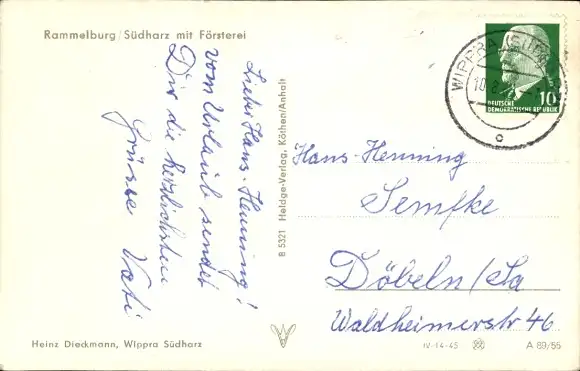 Rammelburg/Südharz mit Försterei
Lieber Hans-Henning!
vom Urlaub sendet
Dir die herzlichsten
Grüsse Vati
B 5321 Heldge-Verlag, Köthen/Anhalt
WIPPRA
10
DEUTSCHE
DEMOKRATISCHE REPUBLIK
Hans-Henning
Semfke
Döbeln/Sa
Waldheimerstr 46
Heinz Dieckmann, Wippra Südharz
IV-14-45
A 89/55